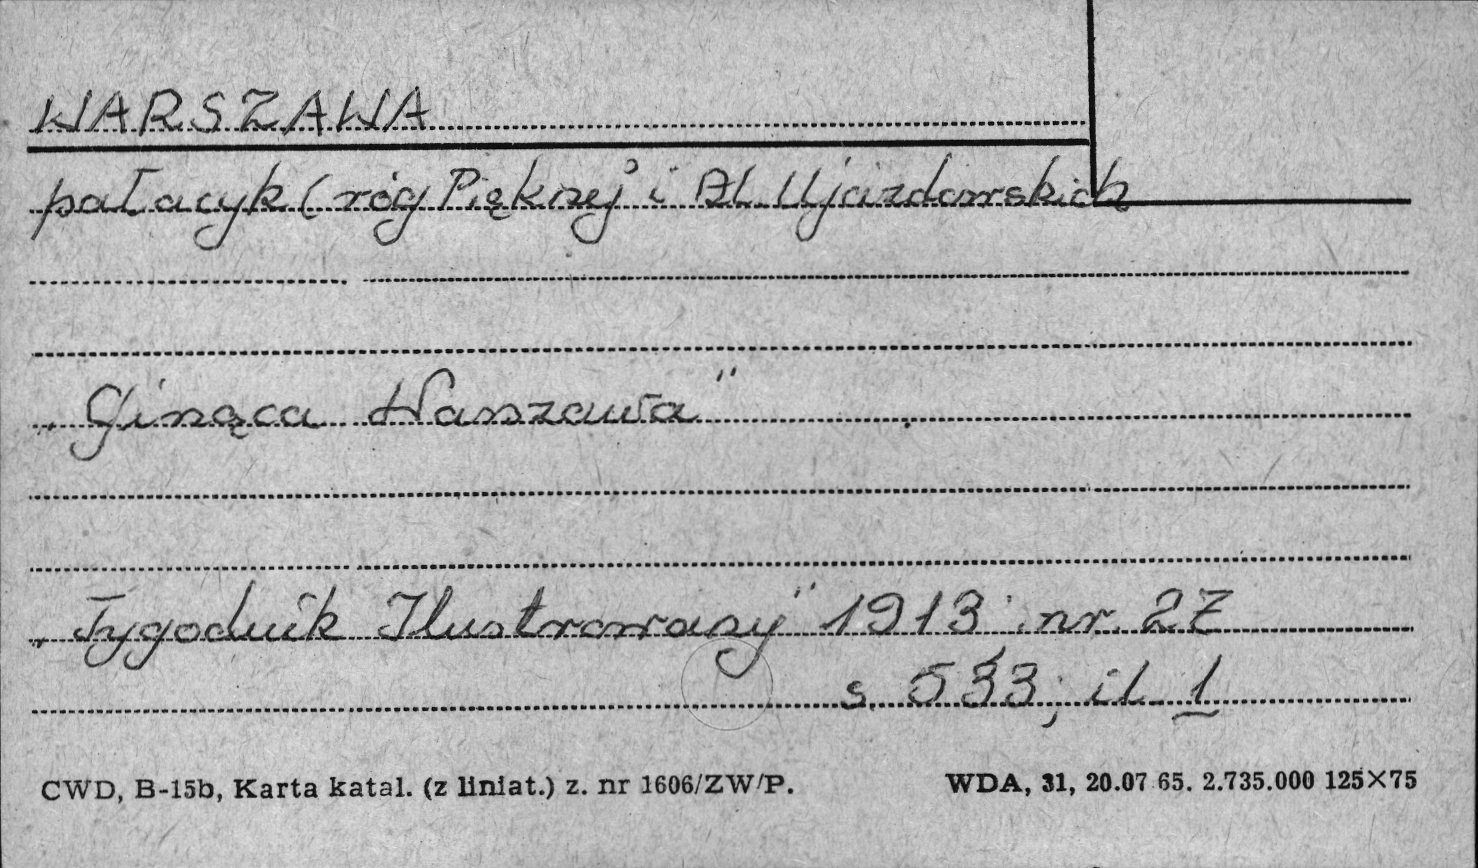 WARSZAWA
pałacyk (róg Pięknej i Al. Ujazdowskich
„Ginąca Warszawa"
„Tygodnik Ilustrowany" 1913; nr. 27
s. 533; il. 1
CWD, B-15b, Karta katal. (z liniat.) z. nr 1606/ZW/P.
WDA, 31, 20.07 65. 2.735.000 125×75